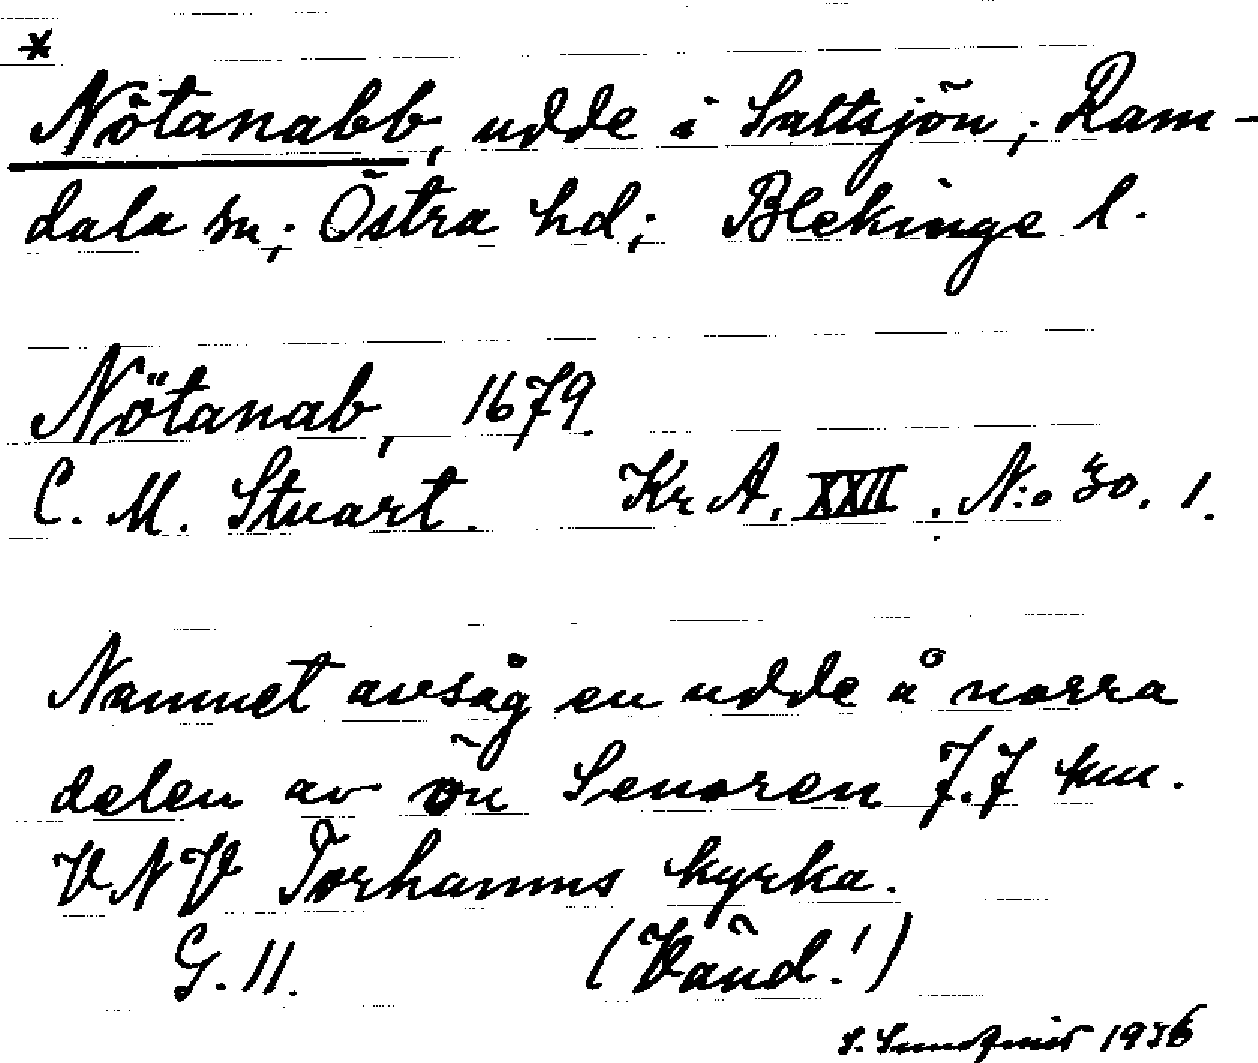 *
Nötanabb, udde i Saltsjön; Ram-
dala sn; Östra hd; Blekinge l.
Nötanab, 1679.
C. M. Stuart. Kr A. XXII. N:o 30. 1.
Namnet avsåg en udde å norra
delen av ön Senoren 7.7 km.
VNV Torhamns kyrka.
G. 11. (Vänd!)
S. Sundqvist 1936